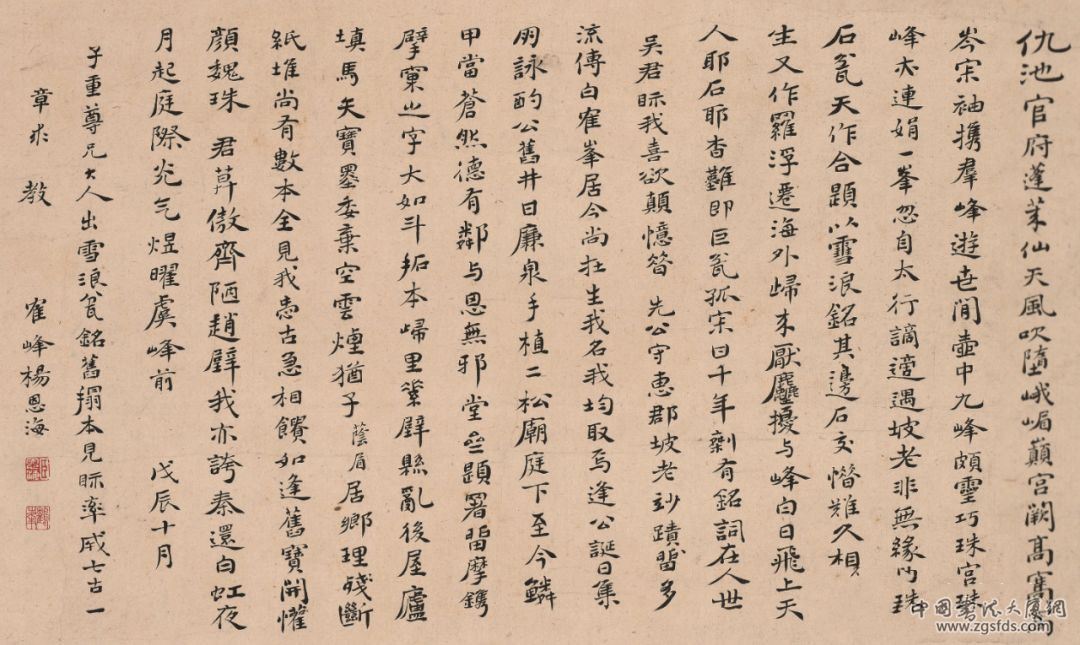 仇池官府蓬莱仙天風吹墮峨嵋巔宮闕高寒
岑寂袖携羣峰遊世間壺中九峰頗靈巧珠宮
峰亦連娟一峯忽自太行謫適遇坡老非無緣以珠
石瓮天作合題以雪浪銘其邊石交憯難久相
生又作羅浮遷海外歸来厭塵擾與峰白日飛上天
人耶石耶杳難即巨瓮孤寂日千年剩有銘詞在人世
吳君眎我喜欲顛憶昝 先公守惠郡坡老妙蹟留多
流傳白隺峯居今尚在生我名我均取焉逢公誕日集
朋詠酌公舊井曰廉泉手植二松廟庭下至今鱗
甲當蒼然德有鄰與思無邪堂題署留摩鐫
擘窠之字大如斗拓本歸里縈壁縣亂後屋廬
填馬矢寶墨委棄空雲煙猶子蔭眉居鄉理殘斷
紙堆尚有數本全見我念古急相餽如逢舊寶開懽
顔魏珠 君莫傲齊陋趙璧我亦誇秦還白虹夜
月起庭際光气煜曜虞峰前 戊辰十月
子重尊兄大人出雪浪瓮銘舊搨本見眎率成七古一
章求 教 隺峰楊恩海
中國書法大厦網
www.zgsfds.com